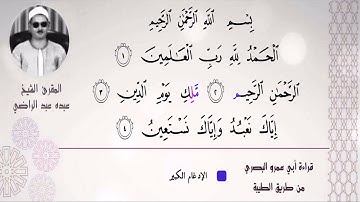 بِسْمِ اللَّهِ الرَّحْمَٰنِ الرَّحِيمِ
الْحَمْدُ لِلَّهِ رَبِّ الْعَالَمِينَ ١
الرَّحْمَٰنِ الرَّحِيمِ ٢ مَلِكِ يَوْمِ الدِّينِ ٣
إِيَّاكَ نَعْبُدُ وَإِيَّاكَ نَسْتَعِينُ ٤
المقرئ الشيخ
عبده عبد الراضي
قراءة أبي عمرو البصري
من طريق الطيبة
الإدغام الكبير